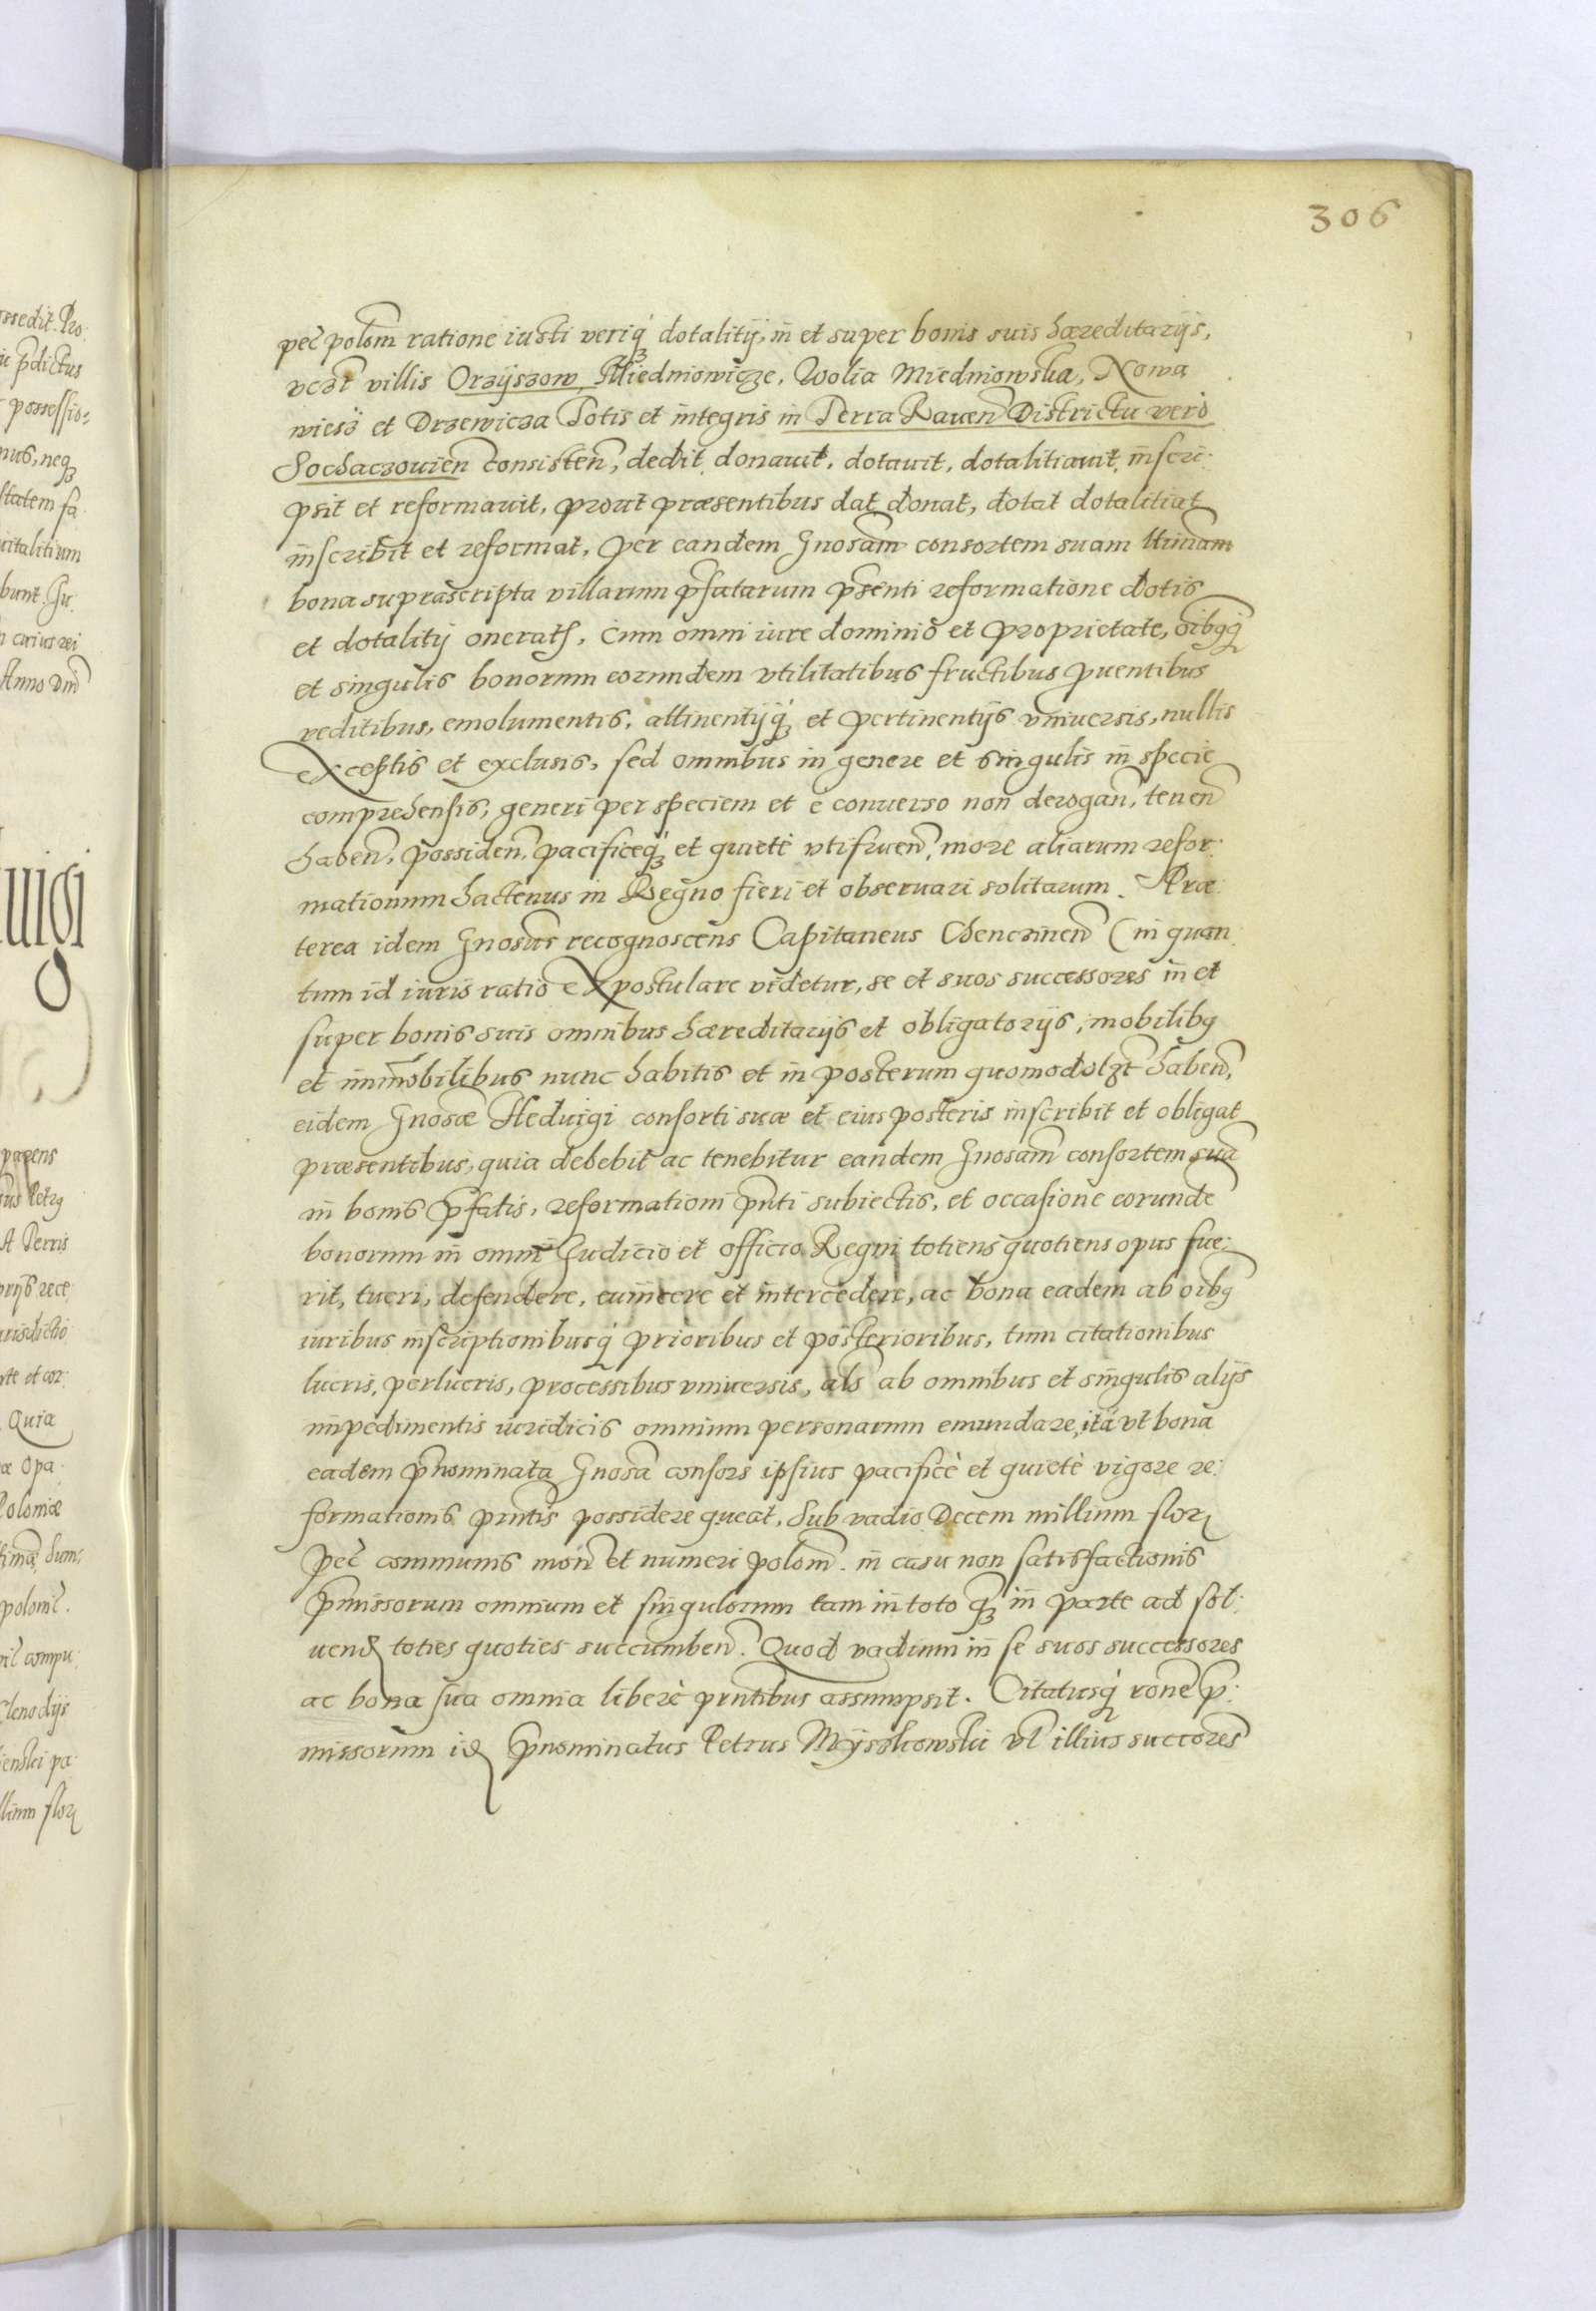 306
pec̃ polon̄ ratione iusti veriq́ꝫ dotalitij, in et super bonis suis hæreditarijs,
vczt villis Orzÿszow, Miedniowicze, Wolia Miedniowska, Nowa
wieś et Drzewicza Totis et integris in Terra Rauen̄ Districtu verò
Sochaczouien̄ consisten̄, dedit, donauit, dotauit, dotalitiauit, inscri:
psit et reformauit, prout præsentibus dat, donat, dotat dotalitiat
inscribit et reformat, per eandem Gnosam̄ consortem suam
bona suprascripta villarum p̄fatarum p̄senti reformatione dotis
et dotalitij onerata, cum omni iure dominio et proprietate, oībꝯq́ꝫ
et singulis bonorum eorundem vtilitatibus fructibus ꝓuentibus
reditibus, emolumentis, attinentijsq́ꝫ et pertinentijs vniuersis, nullis
exceptis et exclusis, sed omnibus in genere et singulis in specie
comprehensis, generi per speciem et è conuerso non derogan̄, tenen̄
haben̄, possiden̄, pacificeq́ꝫ et quietè vtifruen̄, more aliarum refor:
mationum hactenus in Regno fieri et obseruari solitarum. Præ:
terea idem Gnosus̄ recognoscens Capitaneus Chencinen̄ (in quan:
tum id iuris ratio expostulare videtur, se et suos successores in et
super bonis suis omnibus hæreditarijs et obligatorijs, mobilibꝯ
et immobilibus nunc habitis et in posterum quomodolꝫt haben̄,
eidem Gnosæ Heduigi consorti suæ et eius posteris inscribit et obligat
præsentibus, quia debebit ac tenebitur eandem Gnosam̄ consortem suā
in bonis p̄fatis, reformationi p̄nti subiectis, et occasione eorundē
bonorum in omni Iudicio et officio Regni totiens quotiens opus fue:
rit, tueri, defendere, euincere et intercedere, ac bona eadem ab oībꝯ
iuribus inscriptionibusq́ prioribus et posterioribus, tum citationibus
lucris, perlucris, processibus vniuersis, als̄ ab omnibus et singulis alijs
impedimentis iuridicis omnium personarum emundare, ità vt bona
eadem p̄nominata Gnosā consors ipsius pacificè et quietè vigore re:
formationis p̄ntis possidere queat, Sub vadio Decem millium flor
pec̃ communis mon̄ et numeri polon̄. in casu non satisfactionis
p̄missorum omnium et singulorum tam in toto q̄ꝫ in parte ad sol:
uend toties quoties succumben̄. Quod vadium in se suos successores
ac bona sua omnia liberè p̄ntibus assumpsit. Citatusq́ꝫ rōne p̄:
missorum id p̄nominatus Petrus Mÿszkowski vl̄ illius succores̄